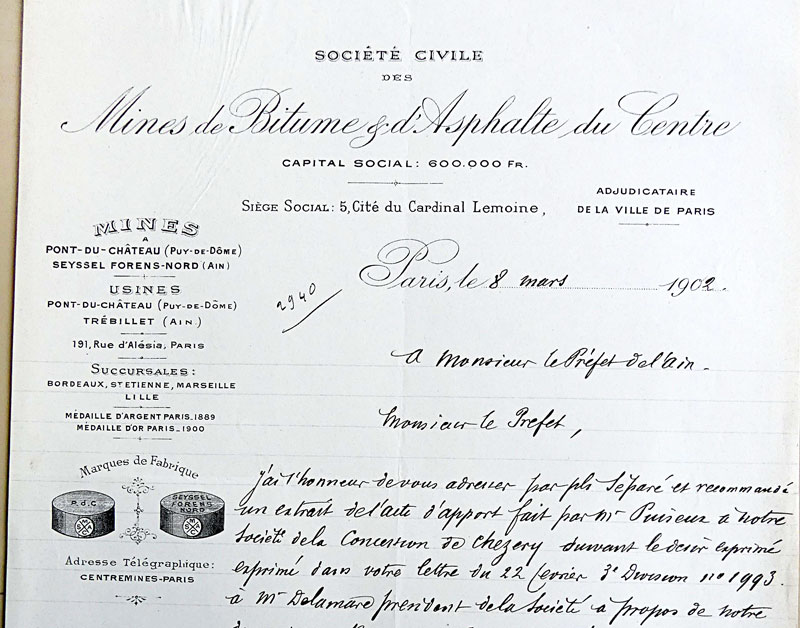 SOCIÉTÉ CIVILE
DES
Mines de Bitume & d'Asphalte du Centre
CAPITAL SOCIAL: 600.000 FR.
SIÈGE SOCIAL: 5, Cité du Cardinal Lemoine,
ADJUDICATAIRE
DE LA VILLE DE PARIS
MINES
A
PONT-DU-CHÂTEAU (PUY-DE-DÔME)
SEYSSEL FORENS-NORD (AIN)
USINES
PONT-DU-CHÂTEAU (PUY-DE-DÔME)
TRÉBILLET (AIN.)
191, Rue d'Alésia, PARIS
SUCCURSALES:
BORDEAUX, ST ETIENNE, MARSEILLE
LILLE
MÉDAILLE D'ARGENT PARIS_1889
MÉDAILLE D'OR PARIS_1900
Marques de Fabrique
P.d.C
SEYSSEL
FORENS
NORD
Adresse Télégraphique:
CENTREMINES-PARIS
2940
Paris, le 8 mars 1902.
A Monsieur le Préfet de l'Ain.
Monsieur le Prefet,
j'ai l'honneur de vous adresser par pli séparé et recommandé
un extrait de l'acte d'apport fait par Mr Puiseux à notre
Société de la Concession de Chezery suivant le désir exprimé
exprimé dans votre lettre du 22 fevrier 3e Division no 1993
à Mr Delamare president de la Société à propos de notre